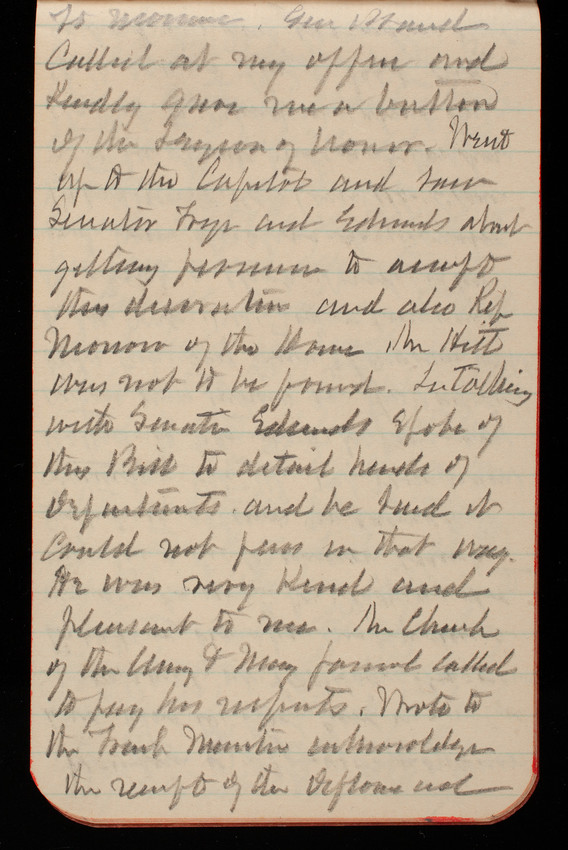 to
Called at my office and
Kindly gave me a button
of the Legion of honor. Went
up to the Capitol and saw
Senator Frye and Edmunds about
getting permission to accept
this decoration and also Rep
Morrow of the House Mr Hitt
was not to be found. In talking
with Senator Edmunds spoke of
this Bill to detail heads of
Departments. and he said it
could not pass in that way.
He was very Kind and
pleasant to me. Mr Church
of the Army & Navy Journal called
to pay his respects. Wrote to
the French Minister acknowledge
the receipt of the Diploma and